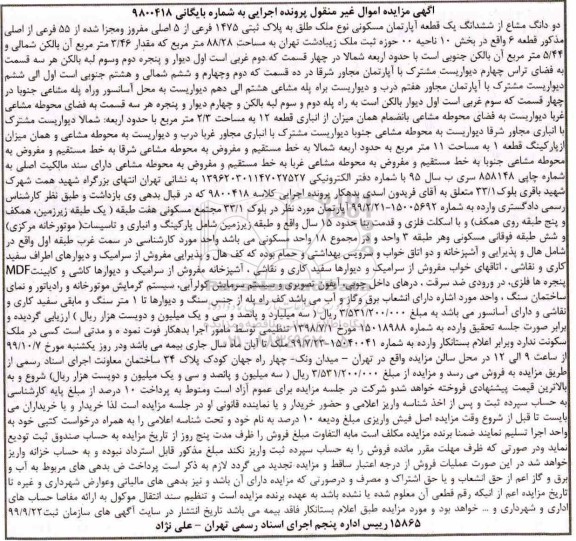 آگهی مزایده اموال غیر منقول پرونده اجرایی به شماره بایگانی ۹۸۰۰۴۱۸
دو دانگ مشاع از ششدانگ یک قطعه آپارتمان مسکونی نوع ملک طلق به پلاک ثبتی ۱۴۷۵ فرعی از ۵ اصلی مفروز ومجزا شده از ۵۵ فرعی از اصلی
مذکور قطعه ۶ واقع در بخش ۱۰ ناحیه ۰۰ حوزه ثبت ملک زیبادشت تهران به مساحت ۸۸/۲۸ متر مربع که مقدار ۳/۴۶ متر مربع آن بالکن شمالی و
۵/۴۴ متر مربع آن بالکن جنوبی است با حدود اربعه شمالا در چهار قسمت که دوم غربی است اول دیوار و پنجره دوم وسوم لبه بالکن هر سه قسمت
به فضای تراس چهارم دیواریست مشترک با آپارتمان مجاور شرقا در ده قسمت که دوم وچهارم و ششم شمالی و هشتم جنوبی است اول الی ششم
دیواریست مشترک با آپارتمان مجاور هفتم درب و دیواریست براه پله مشاعی هشتم الی دهم دیواریست به محل آسانسور وراه پله مشاعی جنوبا در
چهار قسمت که سوم غربی است اول دیوار بالکن است به راه پله دوم و سوم لبه بالکن و چهارم دیوار و پنجره هر سه قسمت به فضای محوطه مشاعی
غربا دیواریست به فضای محوطه مشاعی بانضمام همان میزان از انباری قطعه ۱۲ به مساحت ۲/۳ متر مربع با حدود اربعه: شمالا دیواریست مشترک
با انباری مجاور شرقا دیواریست به محوطه مشاعی جنوبا دیواریست مشترک با انباری مجاور غربا درب و دیواریست به محوطه مشاعی و همان میزان
ازپارکینگ قطعه ۱ به مساحت ۱۱ متر مربع به حدود اربعه شمالا به خط مستقیم و مفروض به محوطه مشاعی شرقا به خط مستقیم و مفروض به
محوطه مشاعی جنوبا به خط مستقیم و مفروض به محوطه مشاعی غربا به خط مستقیم و مفروض به محوطه مشاعی دارای سند مالکیت اصلی به
شماره چاپی ۸۵۸۱۴۸ سری ب سال ۹۵ با شماره دفتر الکترونیکی ۱۳۹۶۲۰۳۰۱۱۴۷۰۲۷۵۲۷ به نشانی تهران انتهای بزرگراه شهید همت شهرک
شهید باقری بلوک ۳۳/۱ متعلق به آقای فریدون اسدی بدهکار پرونده اجرایی کلاسه ۹۸۰۰۴۱۸ که در قبال بدهی وی بازداشت و طبق نظر کارشناس
رسمی دادگستری وارده به شماره ۱۵۰۰۵۶۹۲-۹۹/۲/۳۱ آپارتمان مورد نظر در بلوک ۳۳/۱ مجتمع مسکونی هفت طبقه ( یک طبقه زیرزمین، همکف
و پنج طبقه روی همکف) و با اسکلت فلزی و قدمت بنا حدود ۱۵ سال واقع و طبقه زیرزمین شامل پارکینگ و انباری و تاسیسات( موتورخانه مرکزی)
و شش طبقه فوقانی مسکونی وهر طبقه ۳ واحد و در مجموع ۱۸ واحد مسکونی می باشد واحد مورد کارشناسی در سمت غرب طبقه اول واقع در
شامل هال و پذیرایی و آشپزخانه و دو اتاق خواب و سرویس بهداشتی و حمام بوده که کف هال و پذیرایی مفروش از سرامیک و دیوارهای اطراف سفید
کاری و نقاشی . اتاقهای خواب مفروش از سرامیک و دیوارها سفید کاری و نقاشی . آشپزخانه مفروش از سرامیک و دیوارها کاشی و کابینتMDF
پنجره ها فلزی، در ورودی ضد سرقت . درهای داخل چوبی. آیفون تصویری و سیستم سرمایش کولرآبی، سیستم گرمایش موتورخانه و رادیاتور و نمای
ساختمان سنگ . واحد مورد اشاره دارای انشعاب برق وگاز و آب می باشد کف راه پله از جنس سنگ و دیوارها تا ۱ متر سنگ و مابقی سفید کاری و
نقاشی و دارای آسانسور می باشد به مبلغ ۳/۵۳۱/۲۰۰/۰۰۰ ریال ( سه میلیارد و پانصد و سی و یک میلیون و دویست هزار ریال ) ارزیابی گردیده و
برابر صورت جلسه تحقیق وارده به شماره ۱۵۰۱۸۹۸۸ مورخ ۱۳۹۸/۷/۱ تنظیمی توسط مامور اجرا بدهکار فوت نموده و مدتی است کسی در ملک
سکونت ندارد وبرابر اعلام بستانکار وارده به شماره ۱۵۰۴۰۰۴۱-۹۹/۷/۲۳ ملک تا آبان ماه سال جاری بیمه می باشد ودر روز یکشنبه مورخ ۹۹/۱۰/۷
از ساعت ۹ الی ۱۲ در محل سالن مزایده واقع در تهران - میدان ونک- چهار راه جهان کودک پلاک ۳۴ ساختمان معاونت اجرای اسناد رسمی از
طریق مزایده به فروش می رسد و مزایده از مبلغ ۳/۵۳۱/۲۰۰/۰۰۰ ریال ( سه میلیون و پانصد و سی و یک میلیون و دویست هزار ریال) شروع و به
بالاترین قیمت پیشنهادی فروخته خواهد شدو شرکت در جلسه مزایده برای عموم آزاد است ومنوط به پرداخت ۱۰ درصد از مبلغ پایه کارشناسی
به حساب سپرده ثبت و پس از اخذ شناسه واریز اعلامی و حضور خریدار و یا نماینده قانونی او در جلسه مزایده است لذا خریدار و یا خریداران می
بایست تا قبل از شروع وقت مزایده اصل فیش واریزی مبلغ ودیعه ۱۰ درصد به نام خود و تحت شناسه اعلامی را به همراه درخواست کتبی خود به
واحد اجرا تسلیم نمایند ضمنا برنده مزایده مکلف است مابه التفاوت مبلغ فروش را ظرف مدت پنج روز از تاریخ مزایده به حساب صندوق ثبت تودیع
نماید ودر صورتی که ظرف مهلت مقرر مانده فروش را به حساب سپرده ثبت واریز نکند مبلغ مذکور قابل استرداد نبوده و به حساب خزانه واریز
خواهد شد در این صورت عملیات فروش از درجه اعتبار ساقط و مزایده تجدید می گردد لازم به ذکر است پرداخت ض بدهی های مربوط به آب و
برق و گاز اعم از حق انشعاب و یا حق اشتراک و مصرف و درصورتی که مورد مزایده دارای آن باشد و نیز بدهی های مالیاتی وعوارض شهرداری و غیره تا
تاریخ مزایده اعم از اینکه رقم قطعی آن معلوم شده یا نشده باشد به عهده برنده مزایده است و تنظیم سند انتقال موکول به ارائه مفاصا حساب های
اداری و شهرداری و ... خواهد بود و مورد مزایده طبق اعلام بستانکار فاقد بیمه می باشد تاریخ انتشار در سایت آگهی های سازمان ثبت۹۹/۹/۲۲
۱۵۸۶۵ رییس اداره پنجم اجرای اسناد رسمی تهران - علی نژاد